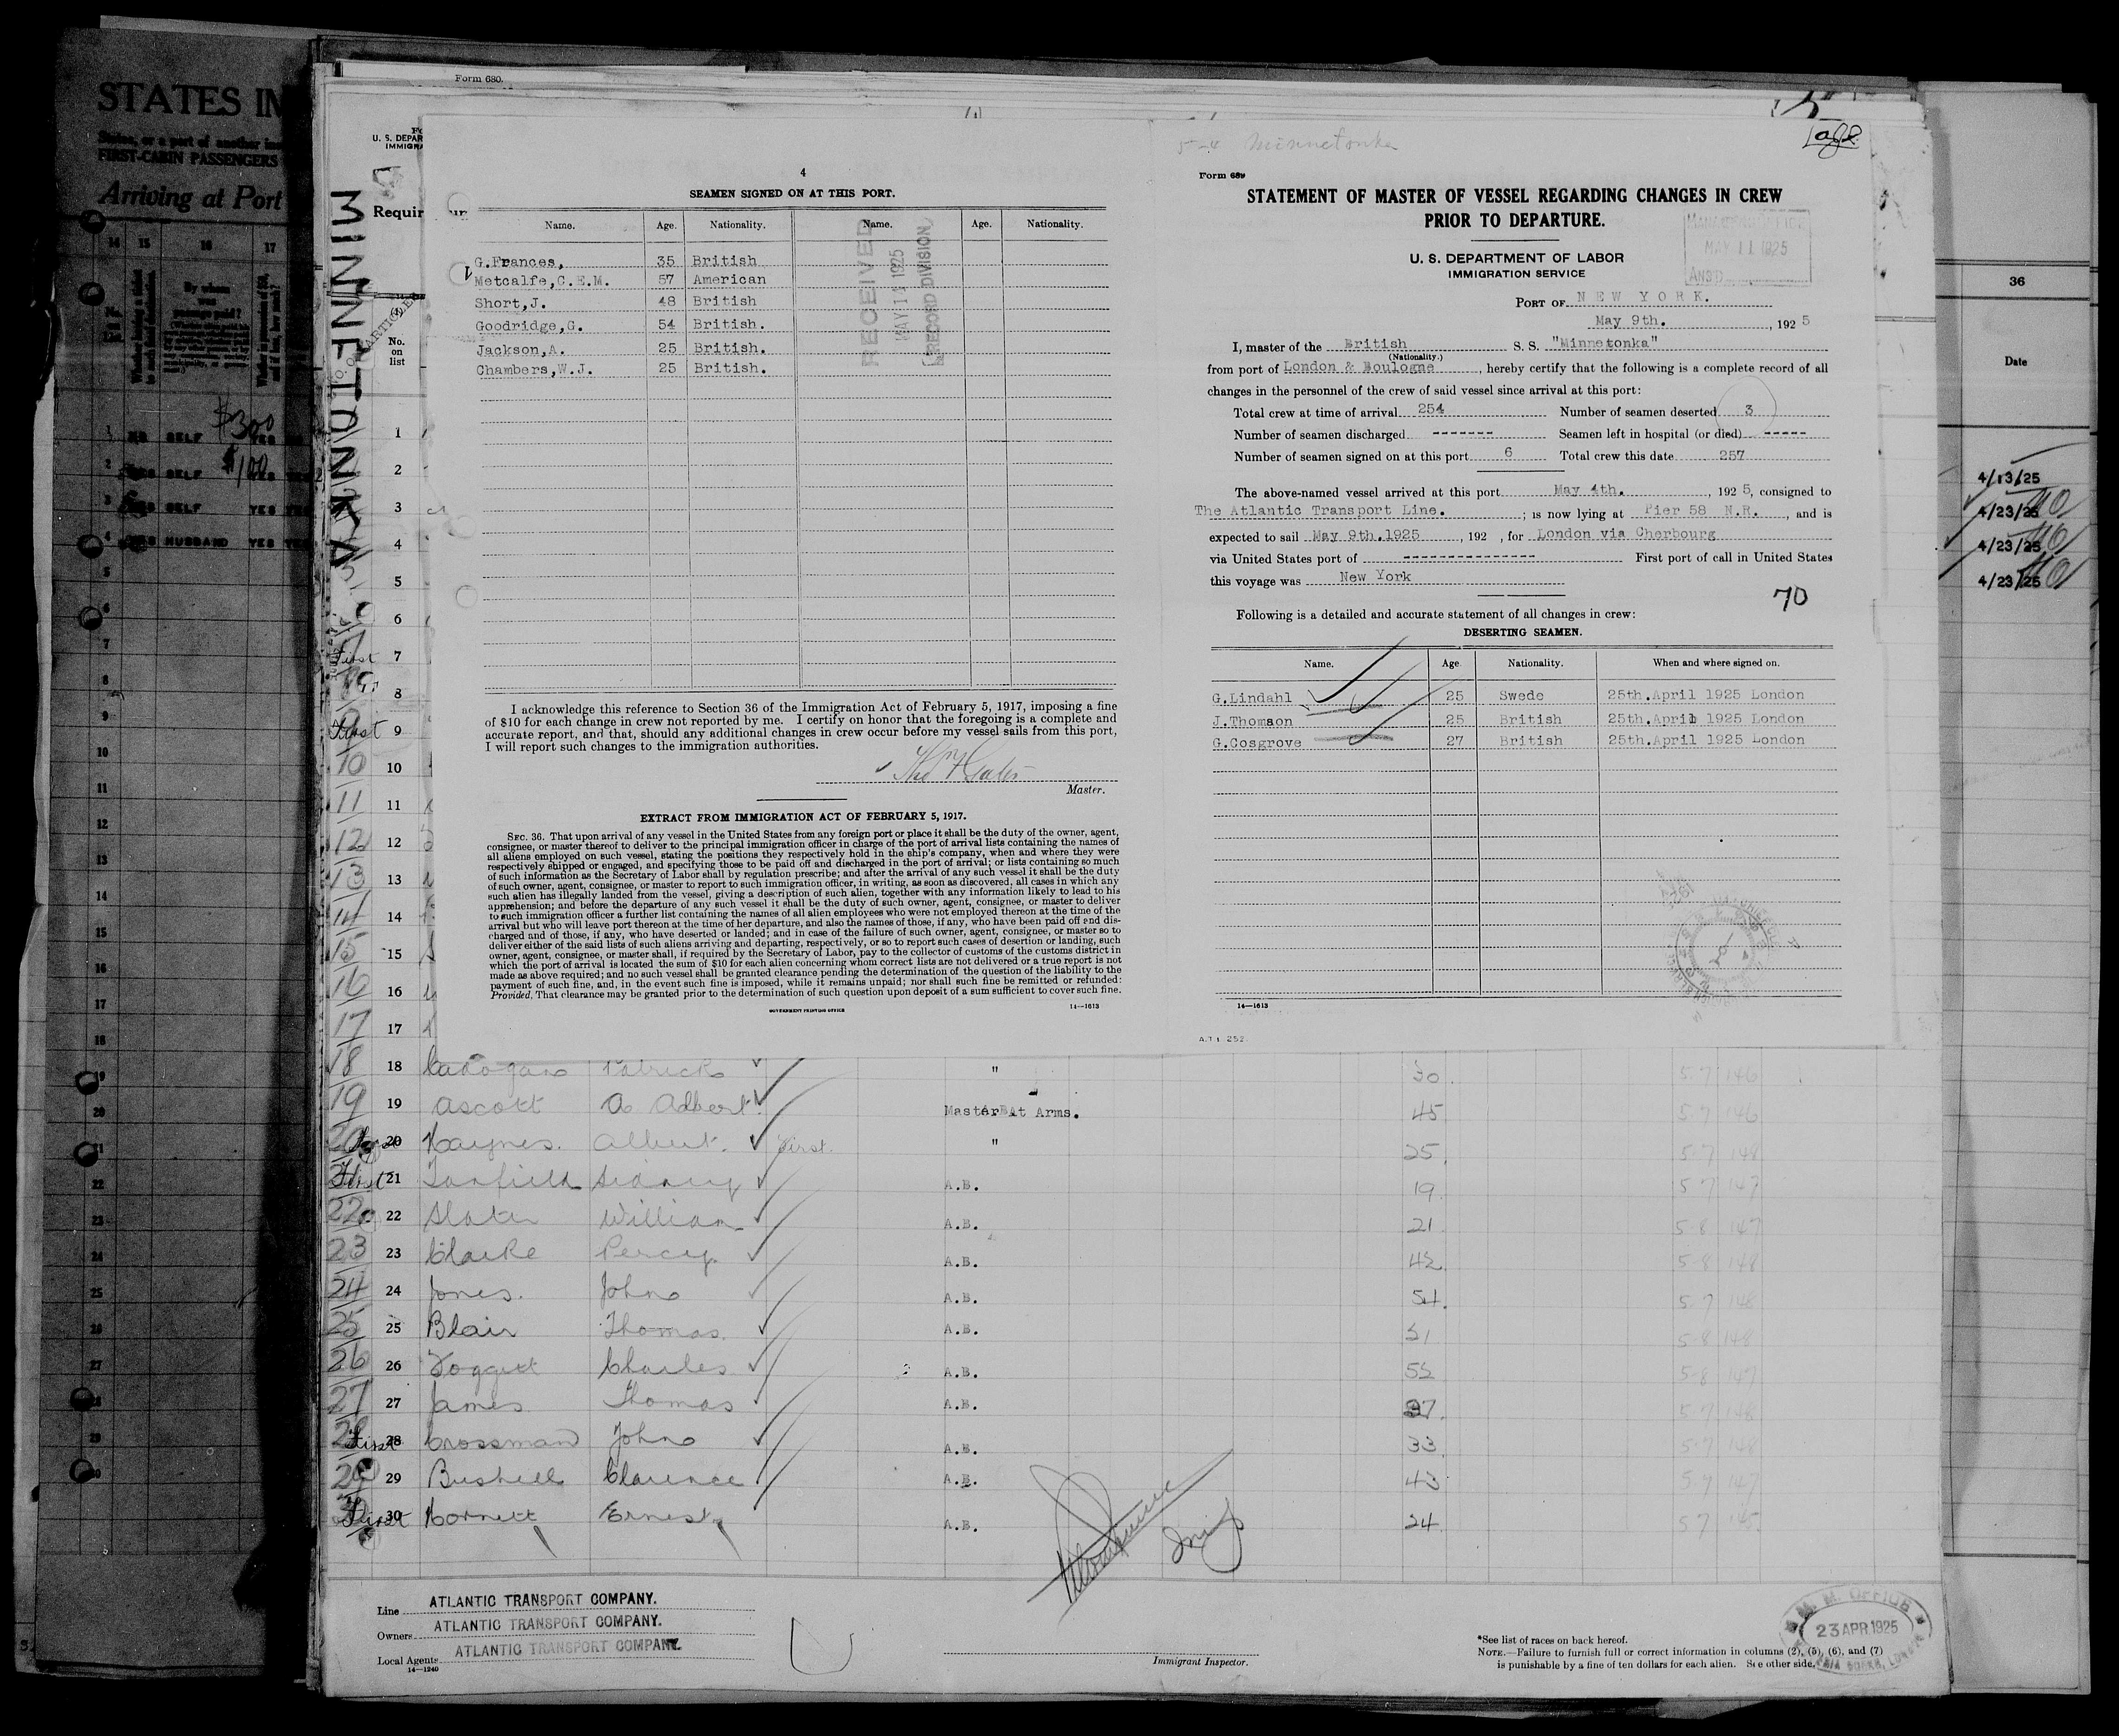 STATES IN
FIRST-CABIN PASSENGERS
Arriving at Port
14 15 16 17
By whom was passage paid?
$300
SELF YES
$100
SELF
SELF YES
HUSBAND YES YES
Form 680.
U. S. DEPAR
IMMIGRA
Requir
MINNETONKA
No. on list
4
SEAMEN SIGNED ON AT THIS PORT.
Name. Age. Nationality. Name. Age. Nationality.
G.Frances, 35 British
Metcalfe,C.E.M. 57 American
Short,J. 48 British
Goodridge,G. 54 British.
Jackson,A. 25 British.
Chambers,W.J. 25 British.
RECEIVED
MAY 11 1925
RECORD DIVISION
I acknowledge this reference to Section 36 of the Immigration Act of February 5, 1917, imposing a fine
of $10 for each change in crew not reported by me. I certify on honor that the foregoing is a complete and
accurate report, and that, should any additional changes in crew occur before my vessel sails from this port,
I will report such changes to the immigration authorities.
Master.
EXTRACT FROM IMMIGRATION ACT OF FEBRUARY 5, 1917.
SEC. 36. That upon arrival of any vessel in the United States from any foreign port or place it shall be the duty of the owner, agent,
consignee, or master thereof to deliver to the principal immigration officer in charge of the port of arrival lists containing the names of
all aliens employed on such vessel, stating the positions they respectively hold in the ship's company, when and where they were
respectively shipped or engaged, and specifying those to be paid off and discharged in the port of arrival; or lists containing so much
of such information as the Secretary of Labor shall by regulation prescribe; and after the arrival of any such vessel it shall be the duty
of such owner, agent, consignee, or master to report to such immigration officer, in writing, as soon as discovered, all cases in which any
such alien has illegally landed from the vessel, giving a description of such alien, together with any information likely to lead to his
apprehension; and before the departure of any such vessel it shall be the duty of such owner, agent, consignee, or master to deliver
to such immigration officer a further list containing the names of all alien employees who were not employed thereon at the time of the
arrival but who will leave port thereon at the time of her departure, and also the names of those, if any, who have been paid off and dis-
charged and of those, if any, who have deserted or landed; and in case of the failure of such owner, agent, consignee, or master so to
deliver either of the said lists of such aliens arriving and departing, respectively, or so to report such cases of desertion or landing, such
owner, agent, consignee, or master shall, if required by the Secretary of Labor, pay to the collector of customs of the customs district in
which the port of arrival is located the sum of $10 for each alien concerning whom correct lists are not delivered or a true report is not
made as above required; and no such vessel shall be granted clearance pending the determination of the question of the liability to the
payment of such fine, and, in the event such fine is imposed, while it remains unpaid; nor shall such fine be remitted or refunded:
Provided, That clearance may be granted prior to the determination of such question upon deposit of a sum sufficient to cover such fine.
GOVERNMENT PRINTING OFFICE 14—1613
5-4 Minnetonka
Form 689
STATEMENT OF MASTER OF VESSEL REGARDING CHANGES IN CREW
PRIOR TO DEPARTURE.
U. S. DEPARTMENT OF LABOR
IMMIGRATION SERVICE
MAY 11 1925
ANS'D
PORT OF NEW YORK.
May 9th. , 192 5
I, master of the British S. S. "Minnetonka"
(Nationality.)
from port of London & Boulogne , hereby certify that the following is a complete record of all
changes in the personnel of the crew of said vessel since arrival at this port:
Total crew at time of arrival 254 Number of seamen deserted 3
Number of seamen discharged ------- Seamen left in hospital (or died) -----
Number of seamen signed on at this port 6 Total crew this date 257
The above-named vessel arrived at this port May 4th. , 192 5, consigned to
The Atlantic Transport Line. ; is now lying at Pier 58 N.R. , and is
expected to sail May 9th.1925 , 192 , for London via Cherbourg
via United States port of --------------- First port of call in United States
this voyage was New York
70
Following is a detailed and accurate statement of all changes in crew:
DESERTING SEAMEN.
Name. Age. Nationality. When and where signed on.
G.Lindahl 25 Swede 25th.April 1925 London
J.Thomson 25 British 25th.April 1925 London
G.Cosgrove 27 British 25th.April 1925 London
14—1613
A.T.L. 252.
36
Date
4/13/25
4/23/25
4/23/25
4/23/25
18 18 Cadogan Patrick " 30 5-7 146
19 19 Ascott A Adbert Master At Arms. 45 5-7 146
20 Haynes. Albert. First. " 25. 5-7 148
First 21 Tanfield Sidney A.B. 19. 5 7 147
22 22 Slater William A.B. 21 5-8 147
23 23 Clarke Percy. A.B. 42. 5-8 148
24 24 Jones. John A.B. 54. 5-7 148
25 25 Blair Thomas. A.B. 51 5-8 148
26 26 Charles A.B. 52 5-8 147
27 27 James Thomas A.B. 37. 5-7 148
First 28 Crossman John A.B. 33 5-7 148
29 29 Bushell Clarence A.B. 43 5-7 147
First 30 Hornett Ernest A.B. 24. 5 7 145
Line ATLANTIC TRANSPORT COMPANY.
Owners ATLANTIC TRANSPORT COMPANY.
Local Agents ATLANTIC TRANSPORT COMPANY.
14—1240
Immigrant Inspector.
*See list of races on back hereof.
NOTE.—Failure to furnish full or correct information in columns (2), (5), (6), and (7)
is punishable by a fine of ten dollars for each alien. See other side.
M. M. OFFICE
23 APR 1925